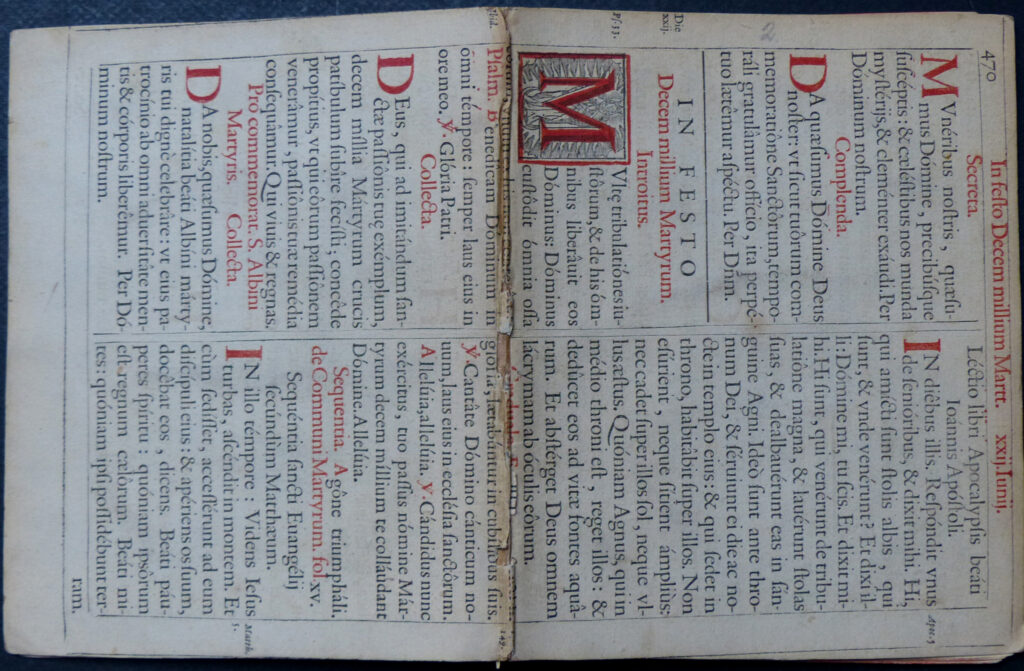 470
In festo Decem millium Martt. xxij. Iunij.
Secreta.
MVnéribus nostris, quæsu-
mus Dómine, precibúsque
suscéptis: & cæléstibus nos munda
mystérijs, & cleménter exáudi. Per
Dóminum nostrum.
Complenda.
DA quæsumus Dómine Deus
noster: vt sicut tuórum com-
memoratióne Sanctórum, tempo-
rali gratulámur officio, ita perpé-
tuo lætémur aspéctu. Per Dñm.
Die
xxij.
IN FESTO
Decem millium Martyrum.
Introitus.
Ps. 33.
MVltę tribulatiónes iu-
stórum, & de his óm-
nibus liberáuit eos
Dóminus: Dóminus
custódit ómnia ossa
Ibid.
Psalm. Benedicam Dóminum in
omni témpore: semper laus eius in
ore meo. ℣ Glória Patri.
Collecta.
DEus, qui ad imitándum san-
ctæ passiónis tuę exémplum,
decem míllia Martyrum crucis
patíbulum subíre fecísti, concéde
propítius, vt qui eórum passiónem
venerámur, passiónis tuæ remédia
consequámur. Qui viuis & regnas.
Pro commemorat. S. Albini
Martyris. Collecta.
DA nobis, quæsumus Dómine,
natalítia beáti Albíni márty-
ris tui dignè celebráre: vt eius pa-
trocínio ab omni aduersitáte men-
tis & córporis liberémur. Per Dó-
minum nostrum.
Léctio libri Apocalypsis beáti
Ioánnis Apóstoli.
Apoc. 7
IN diébus illis. Respóndit vnus
de senióribus, & dixit mihi. Hi,
qui amícti sunt stolis albis, qui
sunt, & vnde venérunt? Et dixi il-
li: Dómine mi, tu scis. Et dixit mi-
hi. Hi sunt, qui venérunt de tribu-
latióne magna, & lauérunt stolas
suas, & dealbauérunt eas in sán-
guine Agni. Ideò sunt ante thro-
num Dei, & séruiunt ei die ac no-
cte in templo eius: & qui sedet in
throno, habitábit super illos. Non
esúrient, neque sítient ámpliùs:
nec cadet super illos sol, neque vl-
lus æstus. Quóniam Agnus, qui in
médio throni est, reget illos: &
dedúcet eos ad vitæ fontes aquá-
rum. Et abstérget Deus omnem
lácrymam ab óculis eórum.
glória, lætabúntur in cubílibus suis.
149.
℣ Cantáte Dómino cánticum no-
uum, laus eius in ecclésia sanctórum.
Allelúia, allelúia. ℣ Cándidus nunc
exércitus, tuo passus nómine Már-
tyrum decem míllium te colláudant
Dómine. Allelúia.
Sequentia. Agóne triumpháli.
de Communi Martyrum. fol xv.
Sequéntia sancti Euangélij
secúndùm Matthæum.
Matth.
5.
IN illo témpore: Videns Iesus
turbas, ascéndit in montem. Et
cùm sedísset, accessérunt ad eum
discípuli eius: & apériens os suum,
docébat eos, dicens. Beáti páu-
peres spíritu: quóniam ipsórum
est regnum cælórum. Beáti mi-
tes: quóniam ipsi possidébunt ter-
ram,